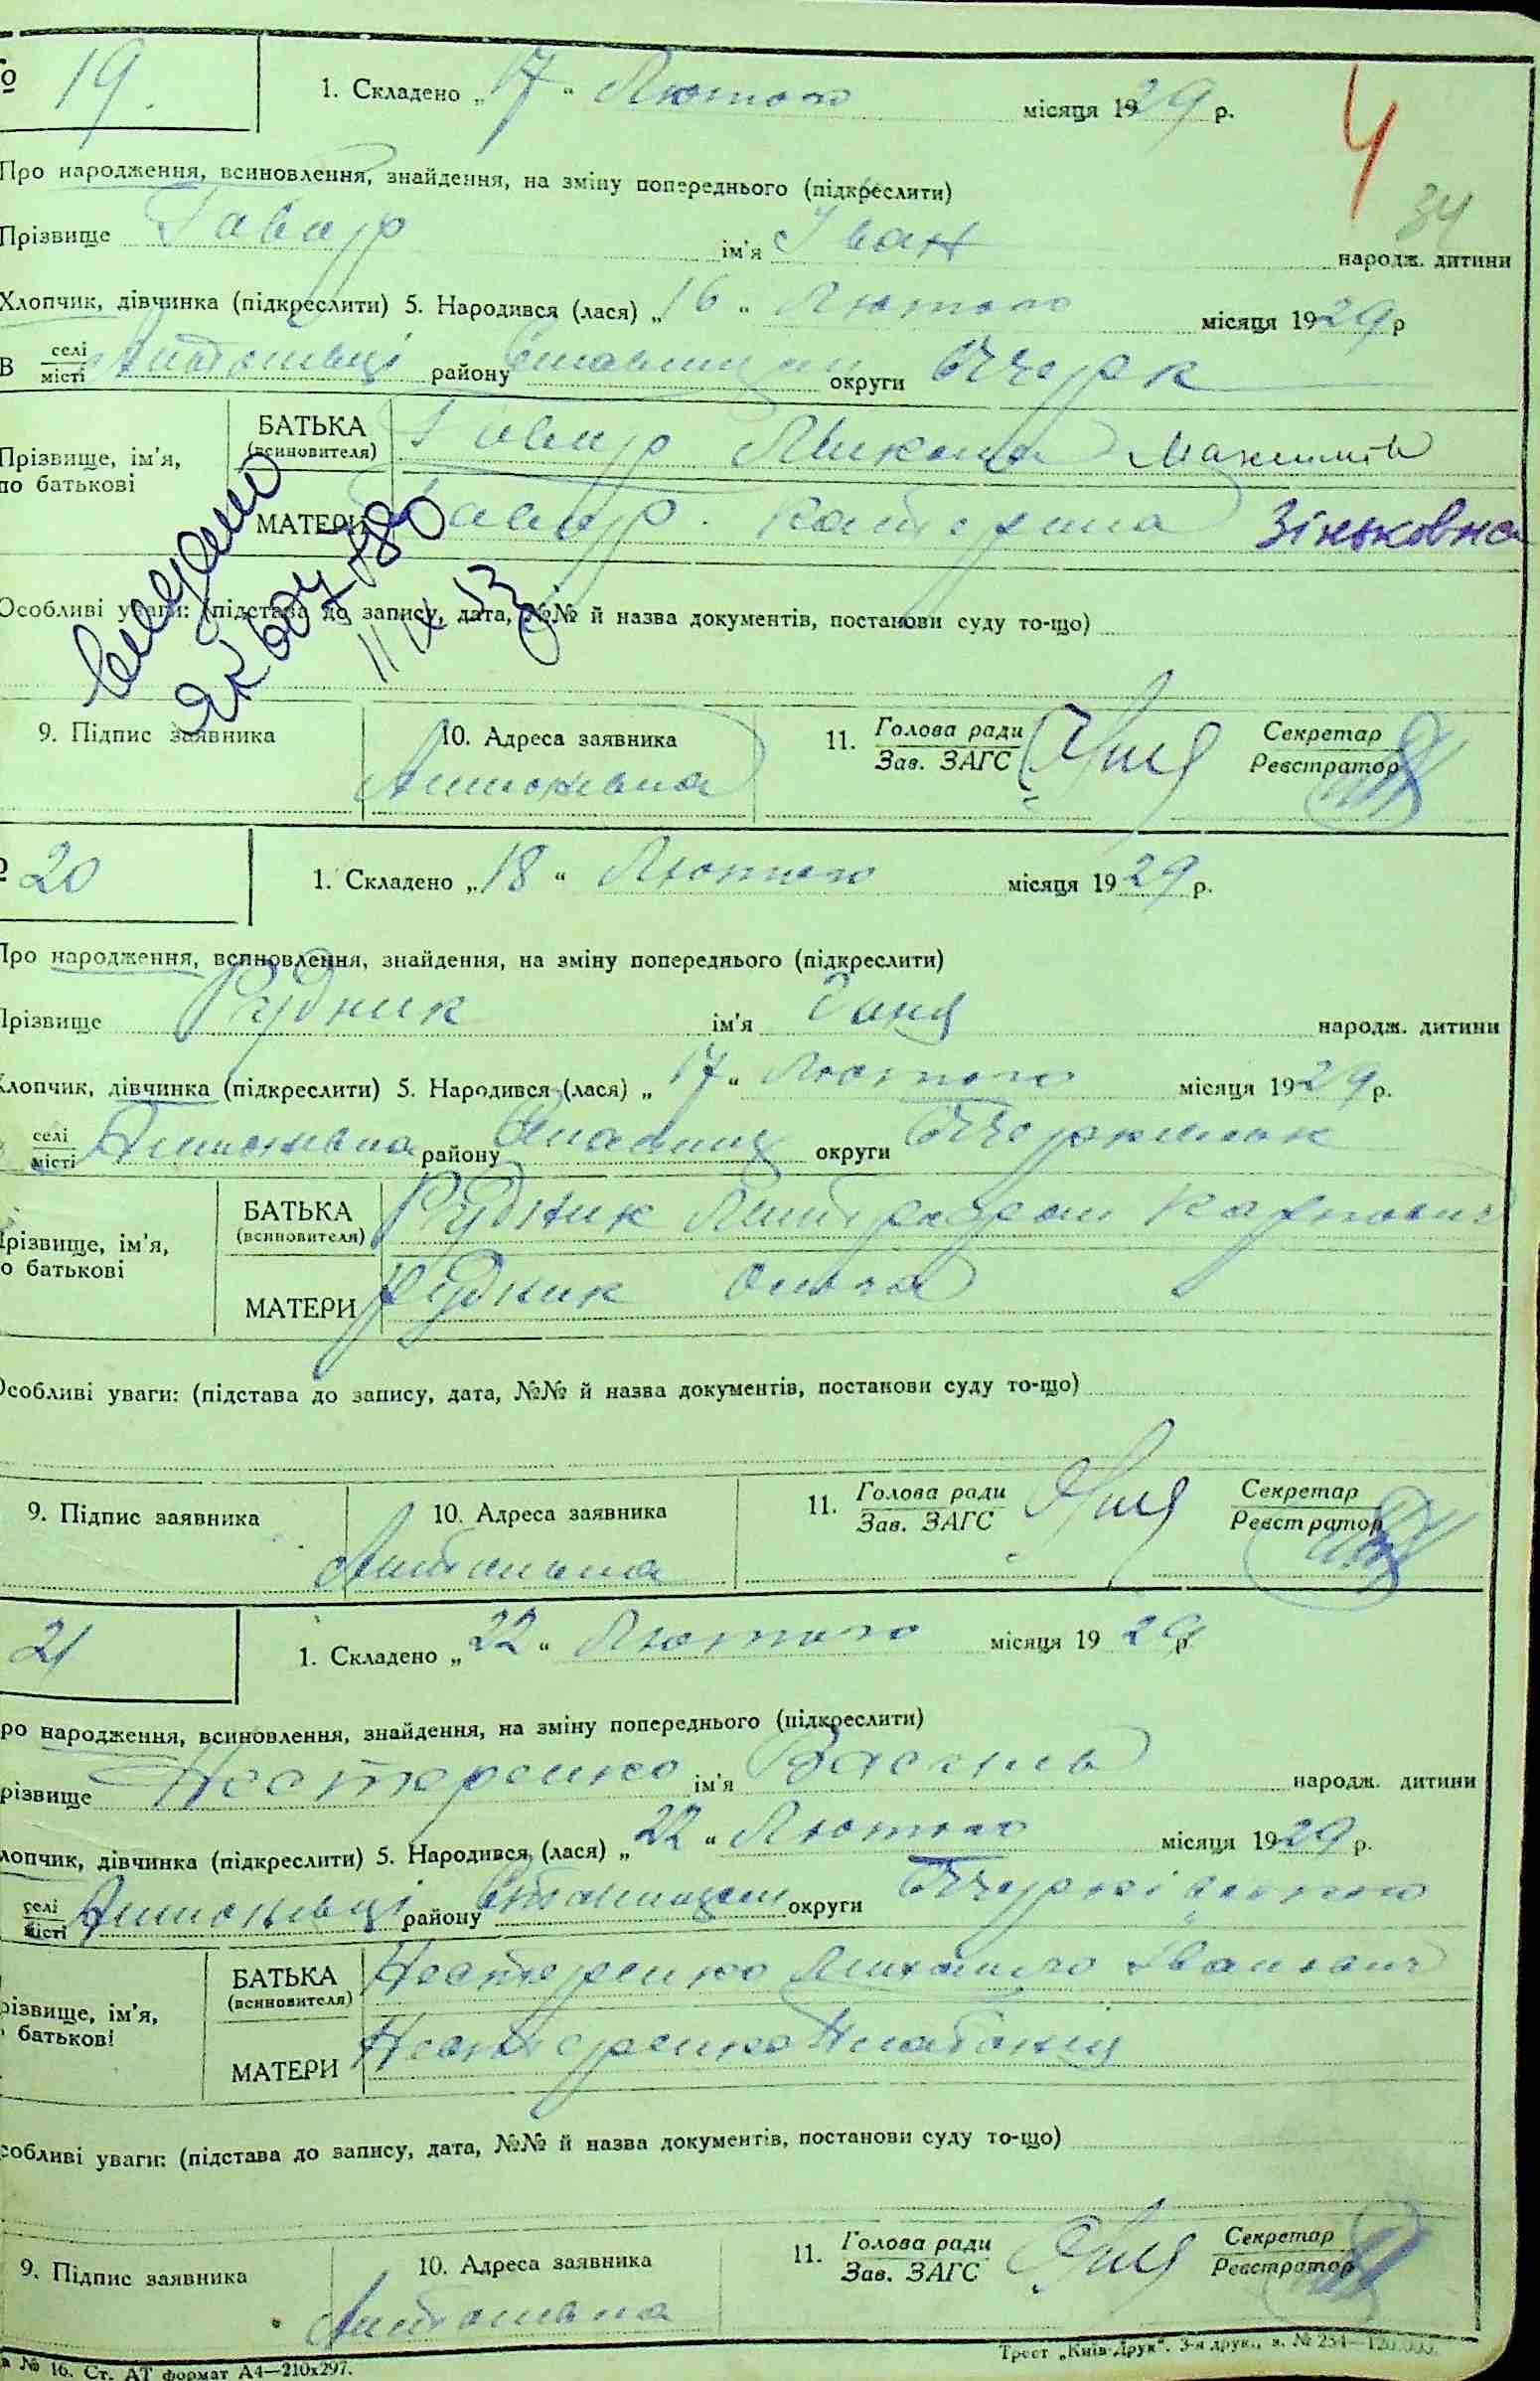 19.
1. Складено „17“ Лютого місяця 1929 р.
4
Про народження, всиновлення, знайдення, на зміну попереднього (підкреслити)
34
Прізвище Гавир ім'я Іван народж. дитини
Хлопчик, дівчинка (підкреслити) 5. Народився (лася) „16“ Лютого місяця 1929 р
В селі
місті району округи БЧерк
Прізвище, ім'я,
по батькові
БАТЬКА Гавир Микола Максимів
(всиновителя)
МАТЕРИ Гавир Катерина Зіньковна
Особливі уваги: (підстава до запису, дата, №№ й назва документів, постанови суду то-що)
9. Підпис заявника 10. Адреса заявника 11. Голова ради Секретар
Зав. ЗАГС Реєстратор
Антонівка
20
1. Складено „18“ Лютого місяця 1929 р.
Про народження, всиновлення, знайдення, на зміну попереднього (підкреслити)
Прізвище Рудник ім'я Ганя народж. дитини
Хлопчик, дівчинка (підкреслити) 5. Народився (лася) „17“ Лютого місяця 1929 р.
селі
місті Антонівка району Ставищ округи
Прізвище, ім'я,
по батькові
БАТЬКА Рудник Митрофан Карпович
(всиновителя)
МАТЕРИ Рудник Ольга
Особливі уваги: (підстава до запису, дата, №№ й назва документів, постанови суду то-що)
9. Підпис заявника 10. Адреса заявника 11. Голова ради Секретар
Зав. ЗАГС Реєстратор
Антонівка
21
1. Складено „22“ Лютого місяця 1929 р
ро народження, всиновлення, знайдення, на зміну попереднього (підкреслити)
різвище Нестеренко ім'я Василь народж. дитини
лопчик, дівчинка (підкреслити) 5. Народився (лася) „22“ Лютого місяця 1929 р.
селі
місті Антонівці району округи
різвище, ім'я,
батькові
БАТЬКА Нестеренко Михайло Іванович
(всиновителя)
МАТЕРИ Нестеренко
собливі уваги: (підстава до запису, дата, №№ й назва документів, постанови суду то-що)
9. Підпис заявника 10. Адреса заявника 11. Голова ради Секретар
Зав. ЗАГС Реєстратор
Антонівка
а № 16. Ст. АТ формат А4—210х297.
Трест „Київ-Друк“. 3-я друк., з. № 254—120.000.